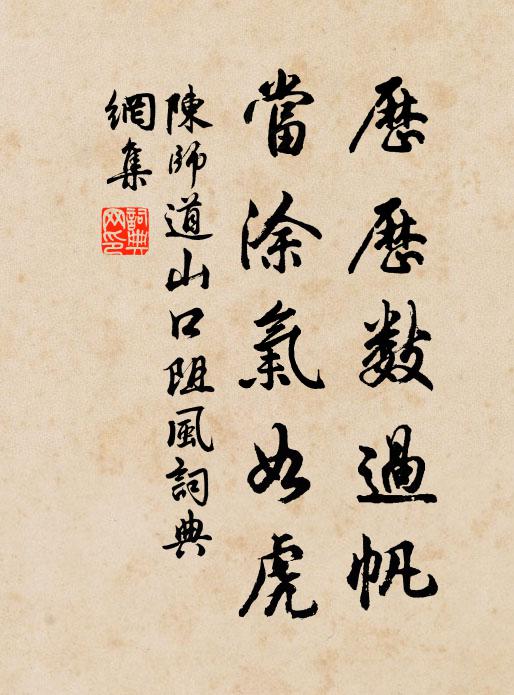 歷歷數過帆
當涂氣如虎
陳師道山口阻風詞典
網集
詞典
网印